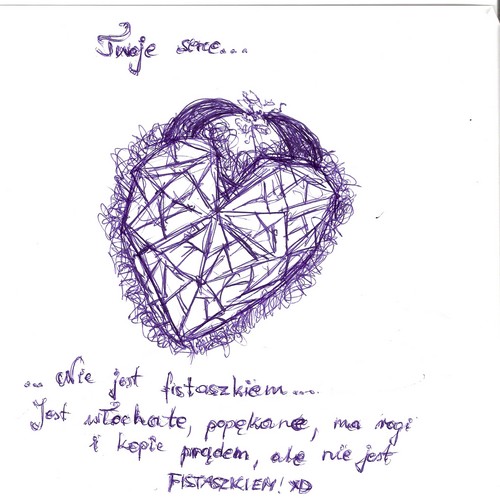 Twoje serce...
... Nie jest fistaszkiem...
Jest włochate, popękane, ma rogi
i kopie prądem, ale nie jest
FISTASZKIEM! XD